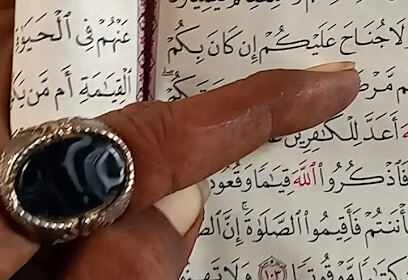 لَا جُنَاحَ عَلَيْكُمْ إِن كَانَ بِكُمْ
أَعَدَّ لِلْكَٰفِرِينَ
فَٱذْكُرُوا۟ ٱللَّهَ قِيَٰمًا وَقُعُود
أْنَنتُمْ فَأَقِيمُوا۟ ٱلصَّلَوٰةَ إِنَّ ٱلص
مَّوْقُوتًا ١٠٣ وَلَا تَهِنُ
عَنْهُمْ فِى ٱلْحَيَوٰ
ٱلْقِيَٰمَةِ أَم مَّن يَك